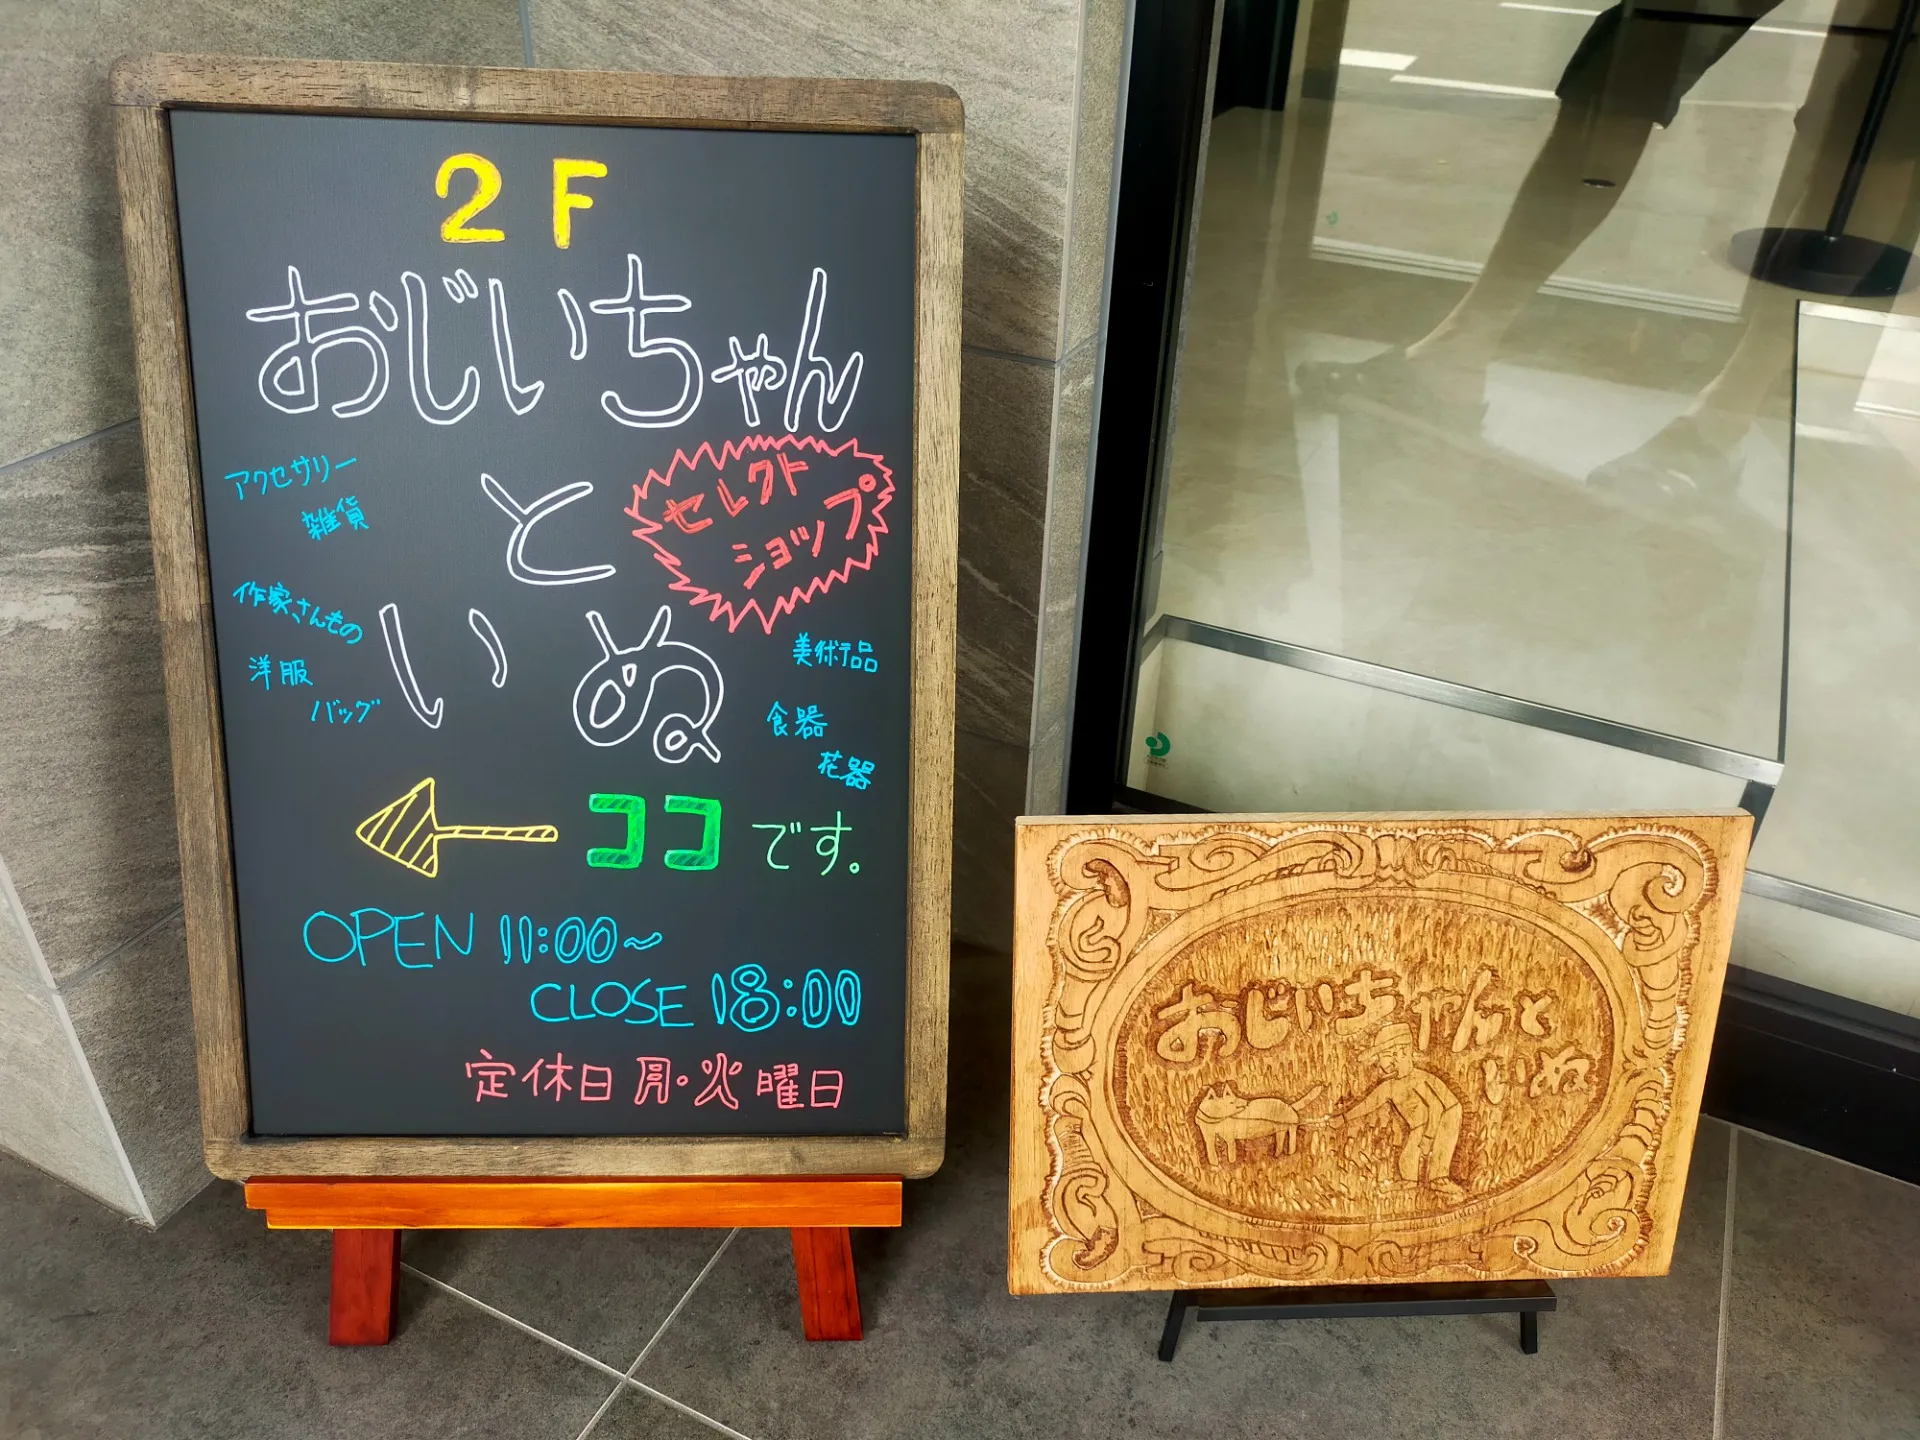 2F
おじいちゃん
と
いぬ
セレクト
ショップ
アクセサリー
雑貨
作家さんもの
洋服
バッグ
美術品
食器
花器
ココです。
OPEN 11:00~
CLOSE 18:00
定休日 月・火曜日
おじいちゃんと
いぬ